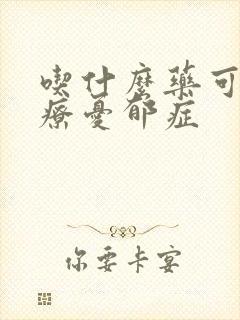 喫什麼藥可
療憂郁症
你要卡宴